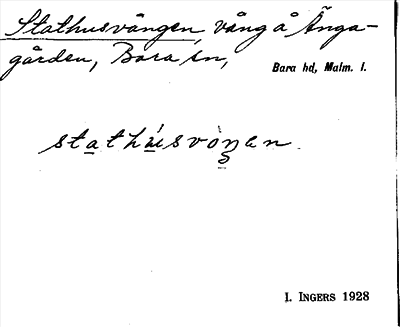 Stathusvången, vång å Änga-
gården, Bara sn,
Bara hd, Malm. l.
stathúsvòŋen.
I. INGERS 1928